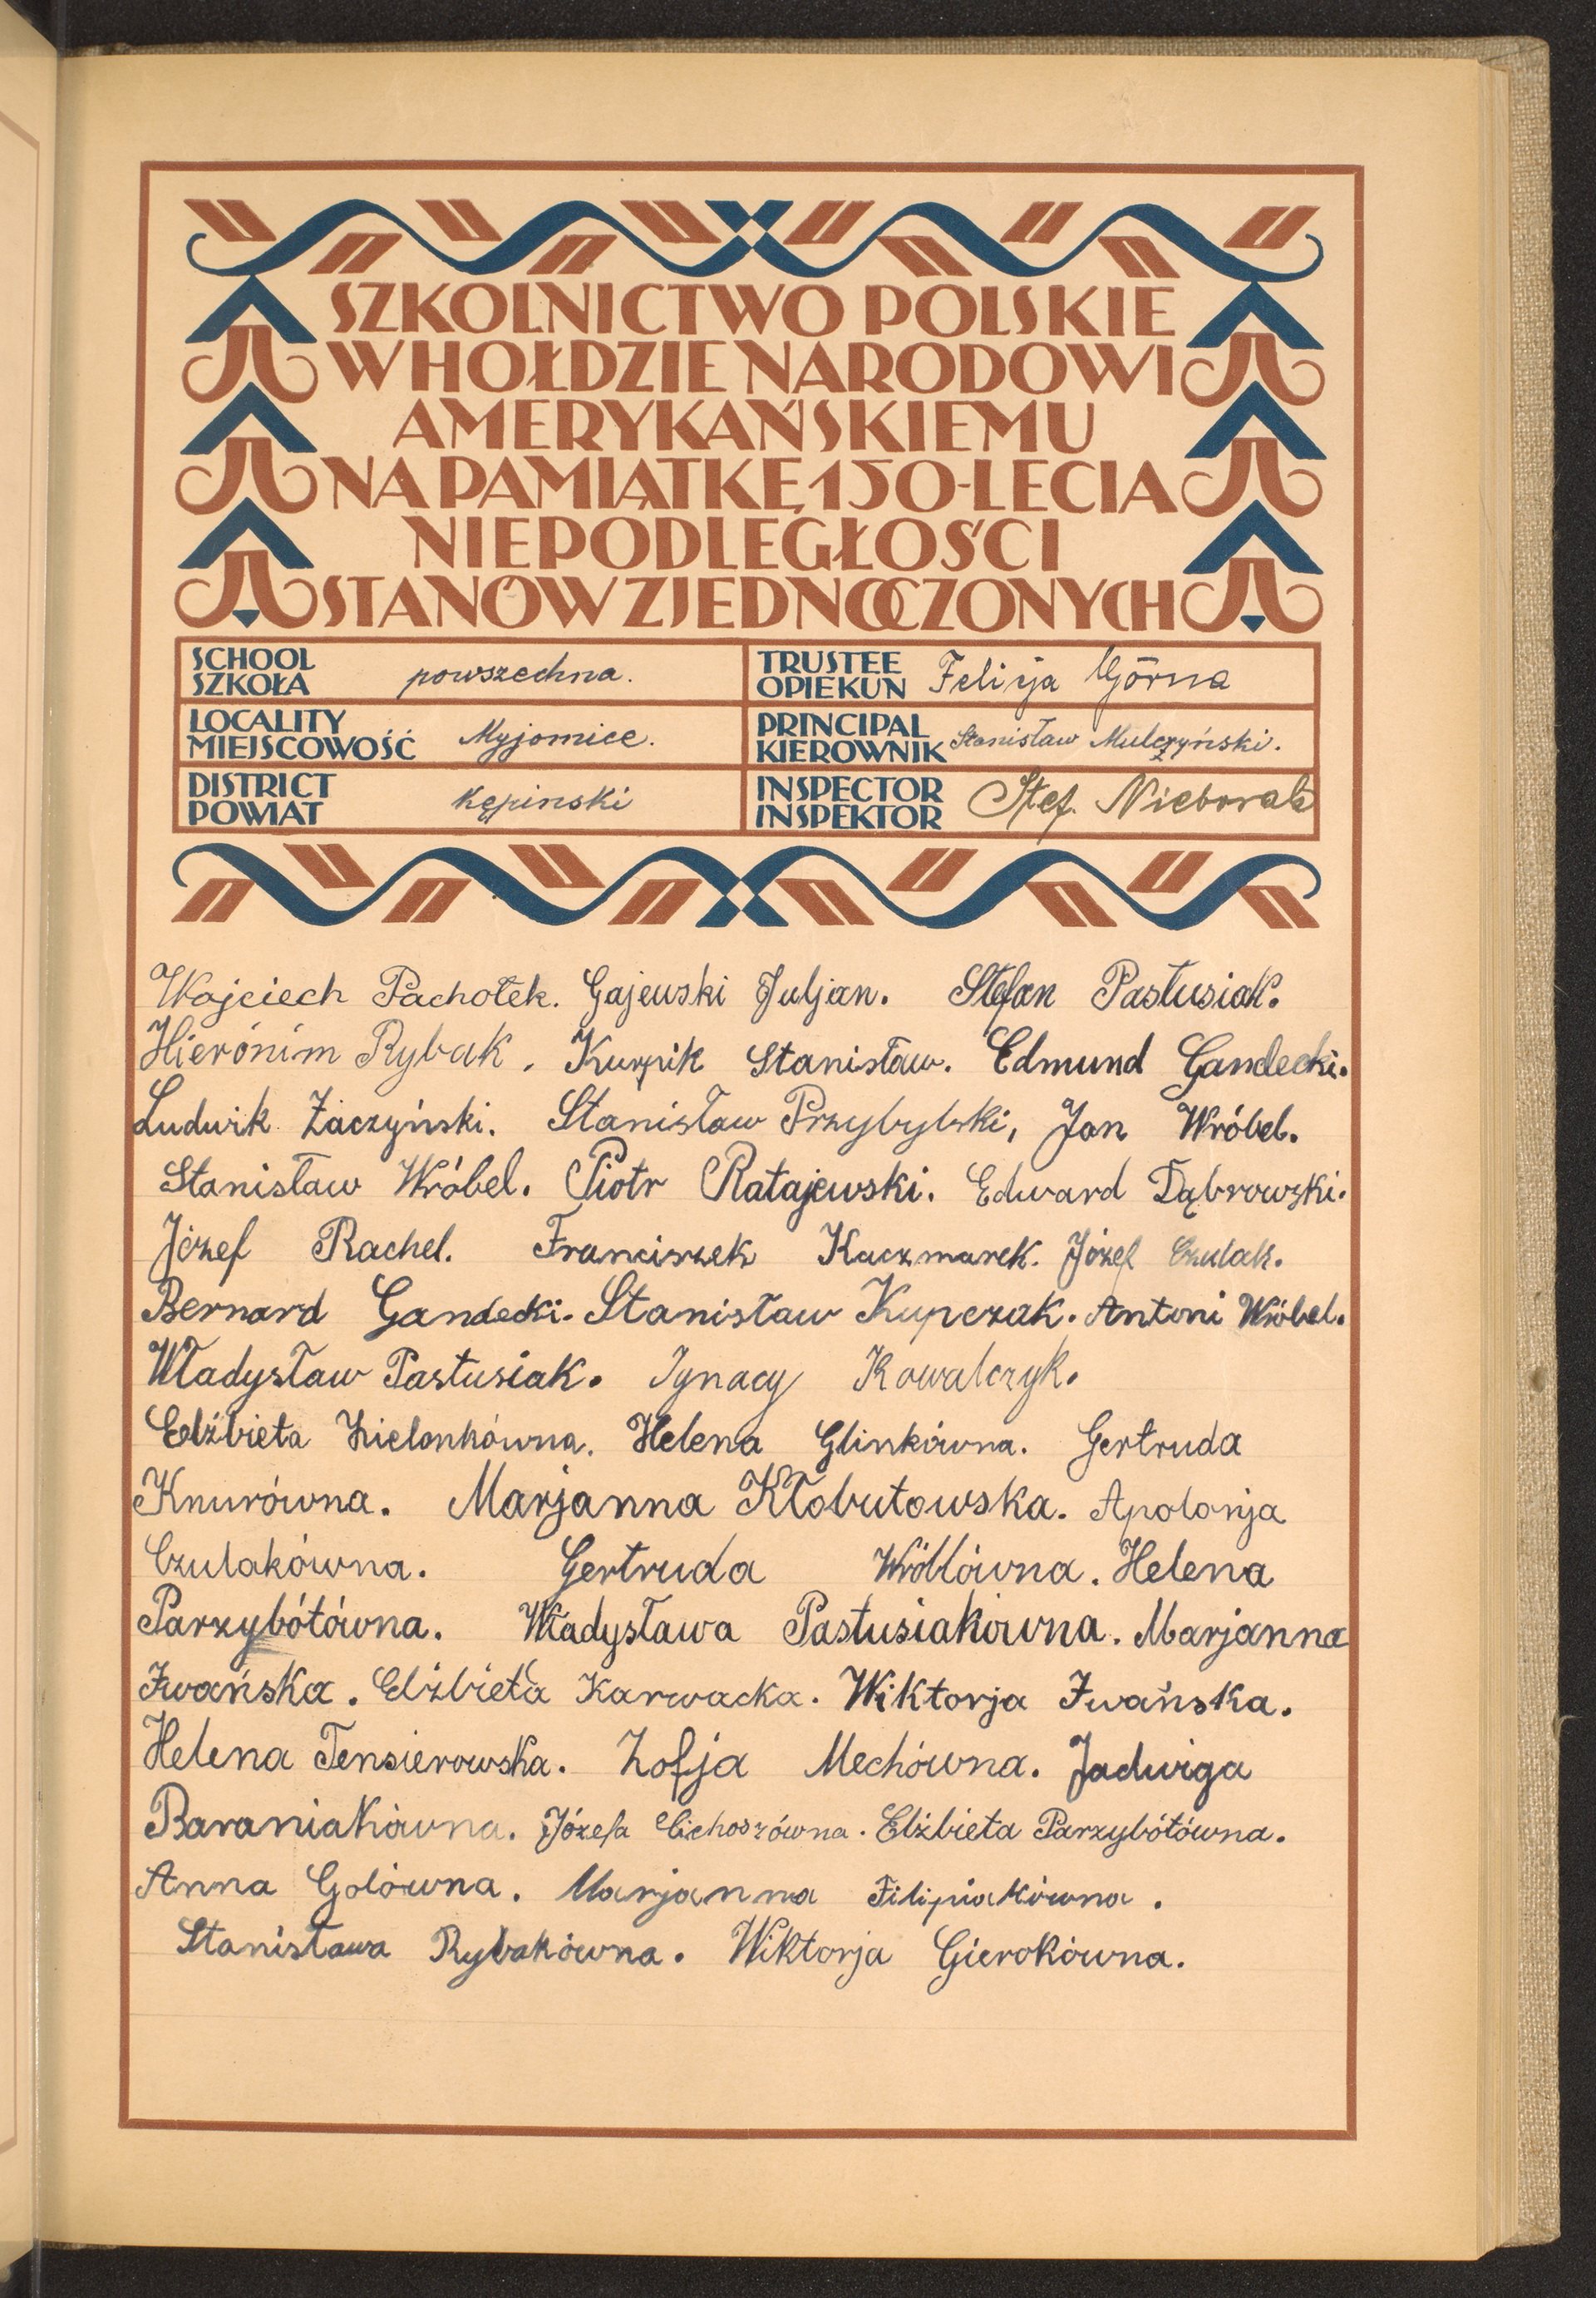 SZKOLNICTWO POLSKIE
W HOŁDZIE NARODOWI
AMERYKAŃSKIEMU
NA PAMIĄTKĘ 150-LECIA
NIEPODLEGŁOŚCI
STANÓW ZJEDNOCZONYCH
SCHOOL
SZKOŁA powszechna.
LOCALITY
MIEJSCOWOŚĆ Myjomice.
DISTRICT
POWIAT kępinski
TRUSTEE
OPIEKUN Felicja Górna
PRINCIPAL
KIEROWNIK Stanisław Mulczyński.
INSPECTOR
INSPEKTOR Stef. Nieborak
Wojciech Pachołek. Gajewski Juljan. Stefan Pastusiak.
Hierónim Rybak. Kurpik Stanisław. Edmund Gandecki.
Ludwik Żaczyński. Stanisław Przybylski, Jan Wróbel.
Stanisław Wróbel. Piotr Ratajewski. Edward Dąbrowski.
Józef Rachel. Franciszek Kaczmarek. Józef Czulak.
Bernard Gandecki. Stanisław Kupczak. Antoni Wróbel.
Władysław Pastusiak. Ignacy Kowalczyk.
Elżbieta Zielonkówna. Helena Glinkówna. Gertruda
Knurówna. Marjanna Kłobutowska. Apolonja
Czulakówna. Gertruda Wróblówna. Helena
Parzybótówna. Władysława Pastusiakówna. Marjanna
Iwańska. Elżbieta Karwacka. Wiktorja Iwańska.
Helena Tensierowska. Zofja Mechówna. Jadwiga
Baraniakówna. Józefa Cichoszówna. Elżbieta Parzybótówna.
Anna Golówna. Marjanna Filipiakówna.
Stanisława Rybakówna. Wiktorja Gierokówna.